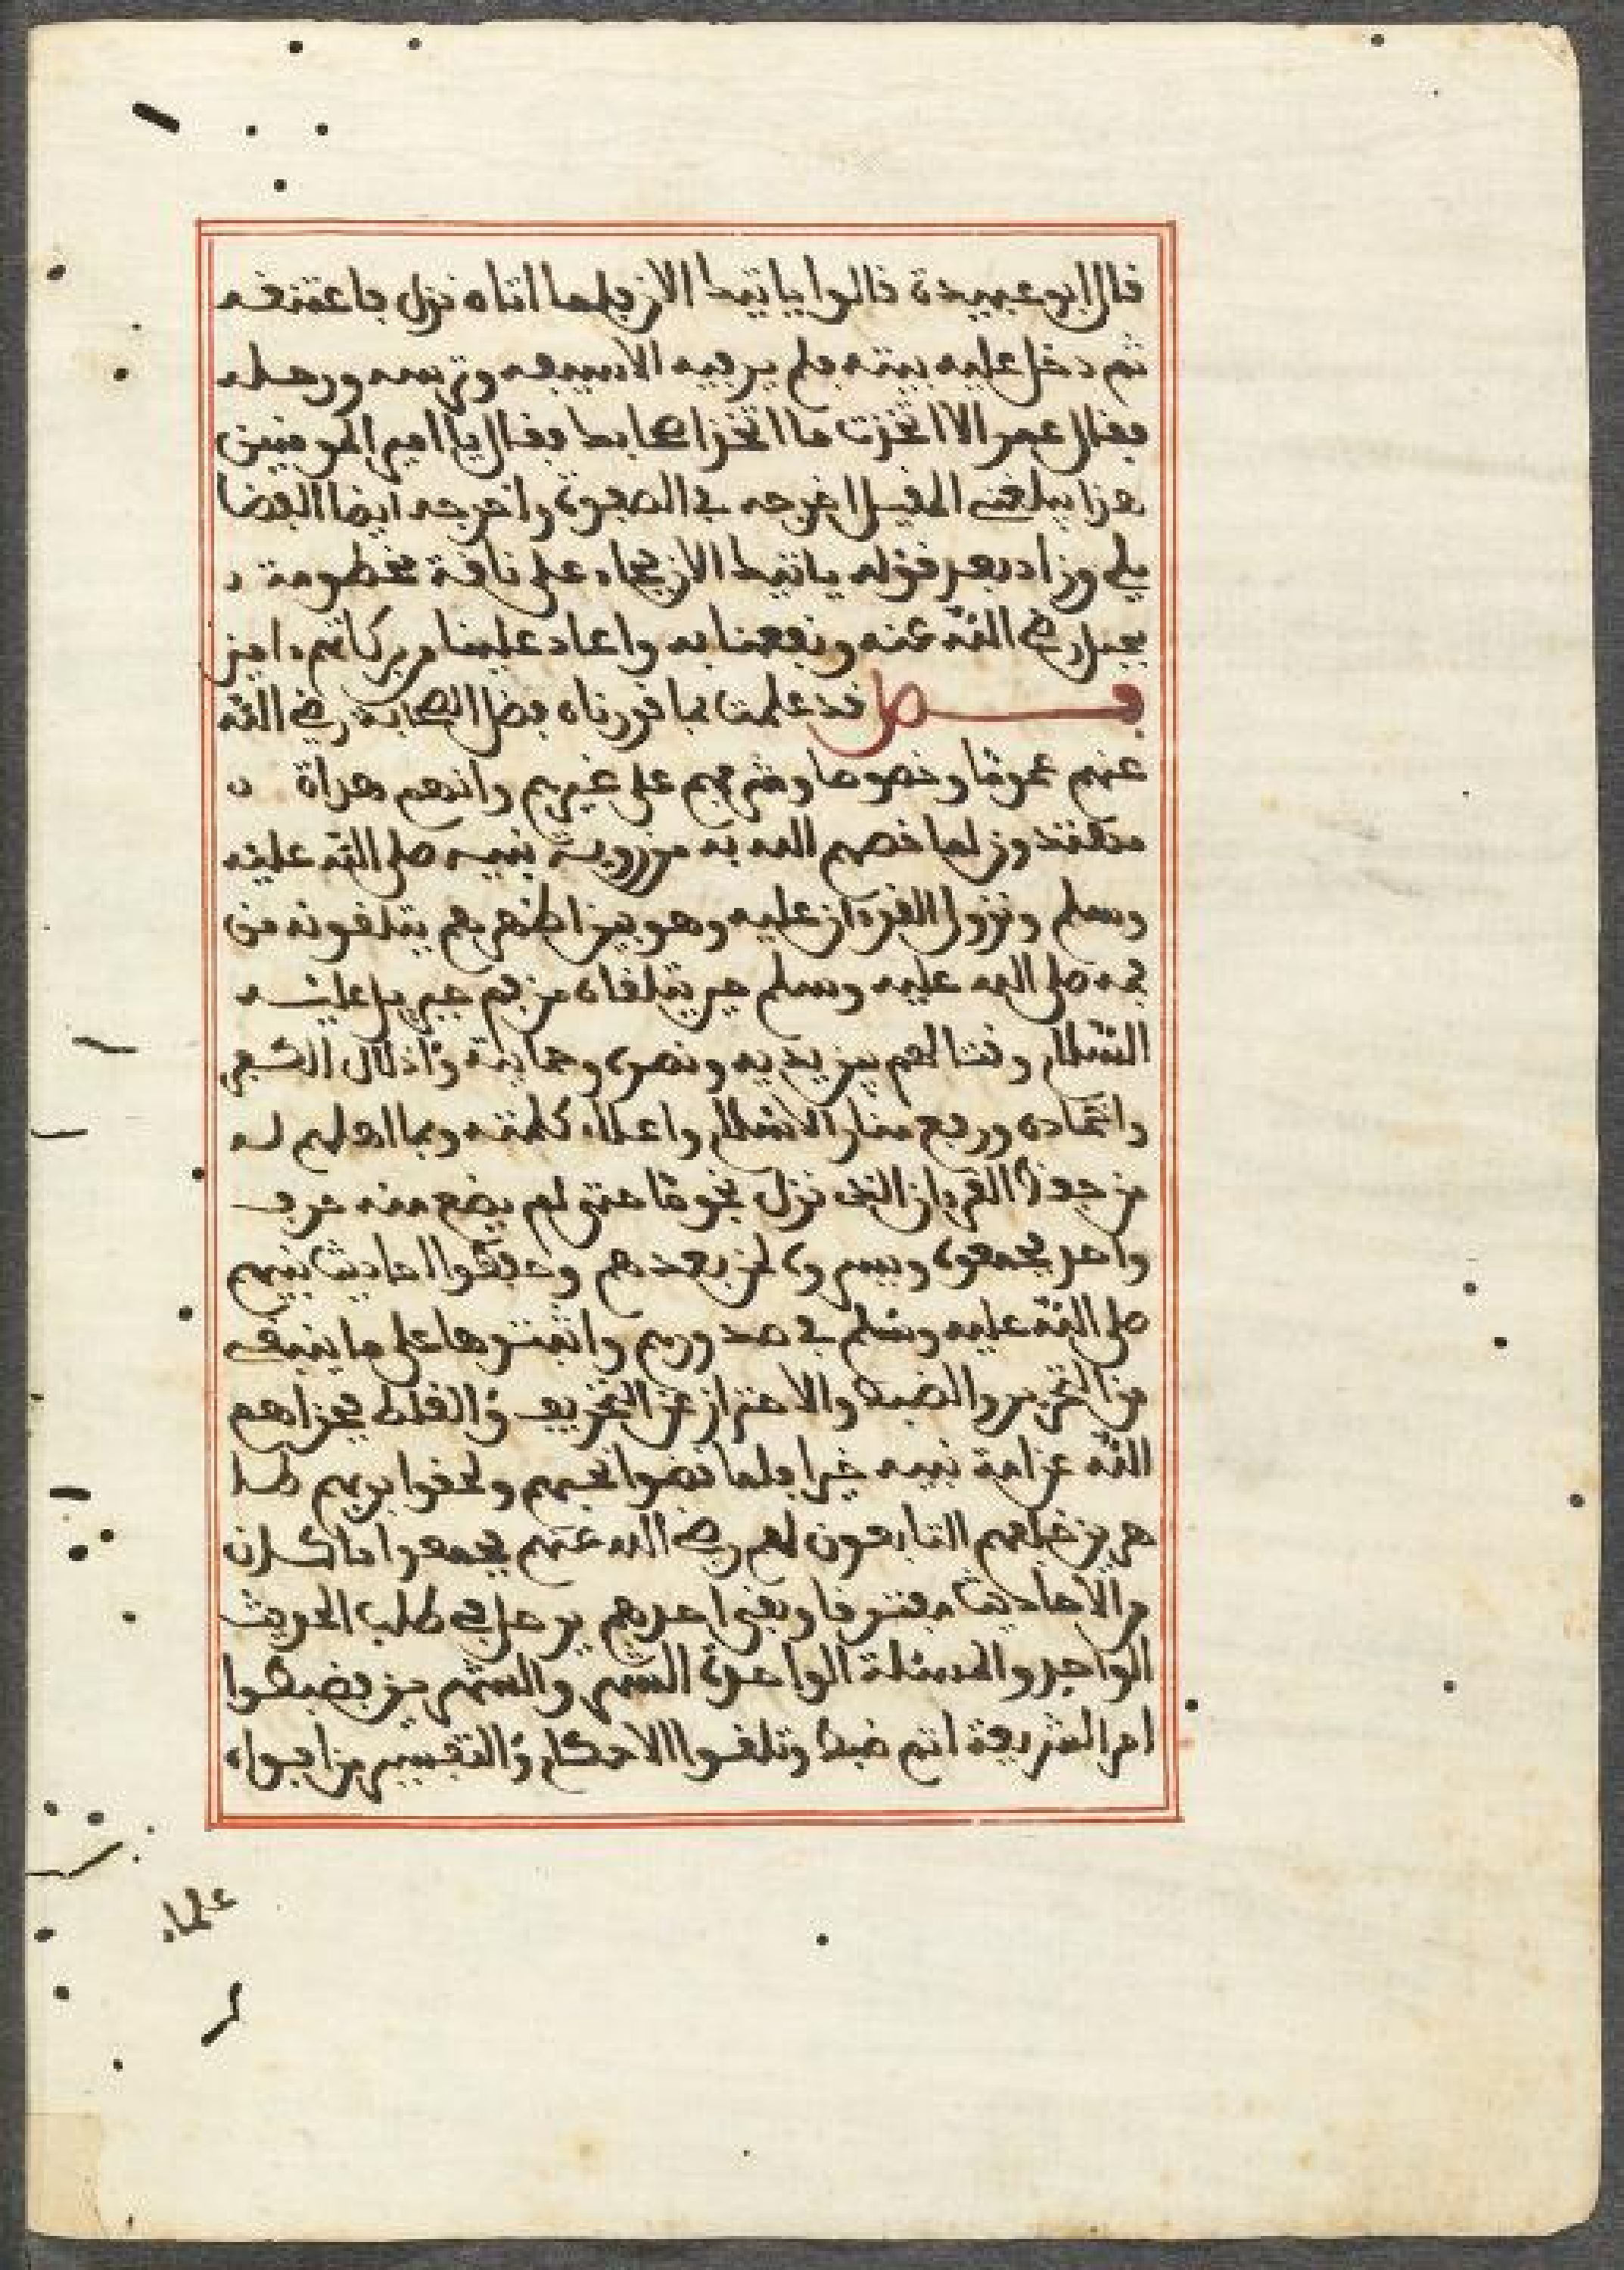 قال ابو عبيدة قالوا ياتيك الان فلما اتاه نزل فاعتنقه
ثم دخل عليه بيته فلم ير فيه الا سيفه وترسه ورحله
فقال عمر الا اتخذت ما اتخذ اصحابك فقال يا امير المومنين
هذا يبلغني المقيل اخرجه في الصفوة واخرجه ايضا الفضا
يلي وزاد بعد قوله ياتيك الان فجاء على ناقة مخطومة
بحبل رضي الله عنه ونفعنا به واعاد علينا من بركاتهم امين
فصل قد علمت بما قررناه فضل الصحابة رضي الله
عنهم عموما وخصوصا وشرفهم على غيرهم وانهم هداة
مهتدون لما خصهم الله به من روية نبيه صلى الله عليه
وسلم ونزول القرءان عليه وهو بين اظهرهم يتلقونه من
فمه صلى الله عليه وسلم حين يتلقاه من فم جبريل عليه
السلام وقتالهم بين يديه ونصره وحمايته واذلال الشرك
واخماده ورفع منار الاسلام واعلاء كلمته وبما اهلهم له
من حفظ القرءان الذي نزل نجوما حتى لم يضع منه حرف
واحد فجمعوه ويسروه لمن بعدهم وحفظوا احاديث نبيهم
صلى الله عليه وسلم في صدورهم واثبتوها على ما ينبغي
من التحرير والضبط والاحتراز عن التحريف والغلط فجزاهم
الله عن امة نبيه خيرا فلما قضوا نحبهم ولحقوا بربهم سلك
هديهم التابعون لهم رضي الله عنهم فجمعوا ما كان
من الاحاديث مفترقا وبقي احدهم يرحل في طلب الحديث
الواحد والمسئلة الواحدة الشهر والشهرين فضبطوا
امر الشريعة اتم ضبط وتلقوا الاحكام والتفسير من افواه
علماء